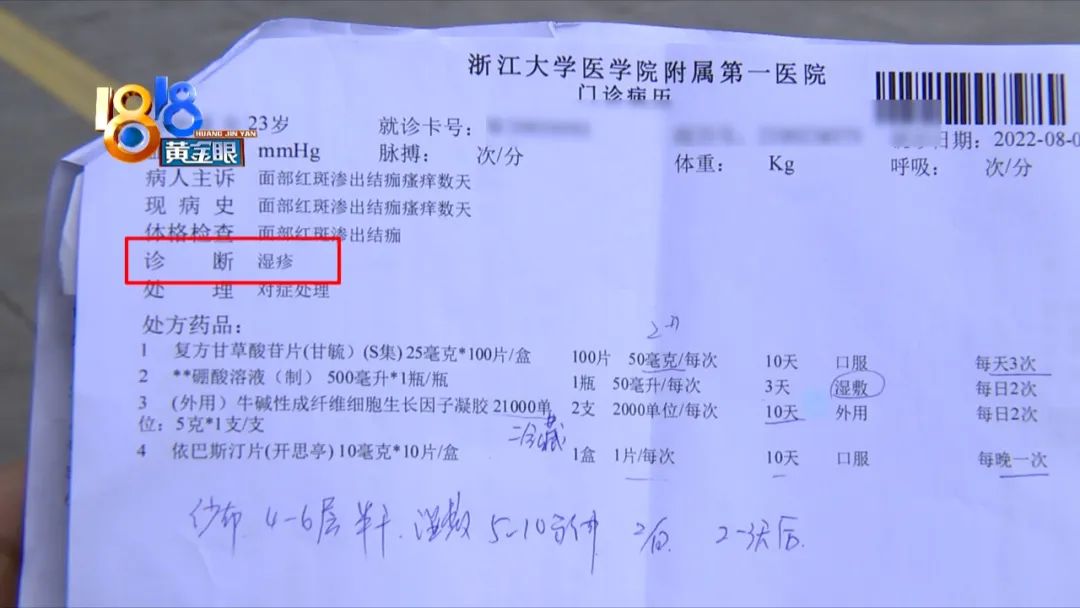 浙江大学医学院附属第一医院
门诊病历
1818
HUANG JIN YAN
黄金眼
23岁 就诊卡号：
日期： 2022-08-0
mmHg 脉搏： 次/分 体重： Kg 呼吸： 次/分
病人主诉 面部红斑渗出结痂瘙痒数天
现病史 面部红斑渗出结痂瘙痒数天
体格检查 面部红斑渗出结痂
诊断 湿疹
处理 对症处理
处方药品：
2片
1 复方甘草酸苷片(甘毓）(S集) 25毫克*100片/盒 100片 50毫克/每次 10天 口服 每天3次
2 **硼酸溶液（制） 500毫升*1瓶/瓶 1瓶 50毫升/每次 3天 湿敷 每日2次
3 (外用）牛碱性成纤维细胞生长因子凝胶 21000单 2支 2000单位/每次 10天 外用 每日2次
位：5克*1支/支
冷藏
4 依巴斯汀片(开思亭) 10毫克*10片/盒 1盒 1片/每次 10天 口服 每晚一次
纱布 4-6层 半干. 湿敷 5-10分钟 2/日 2-3天后